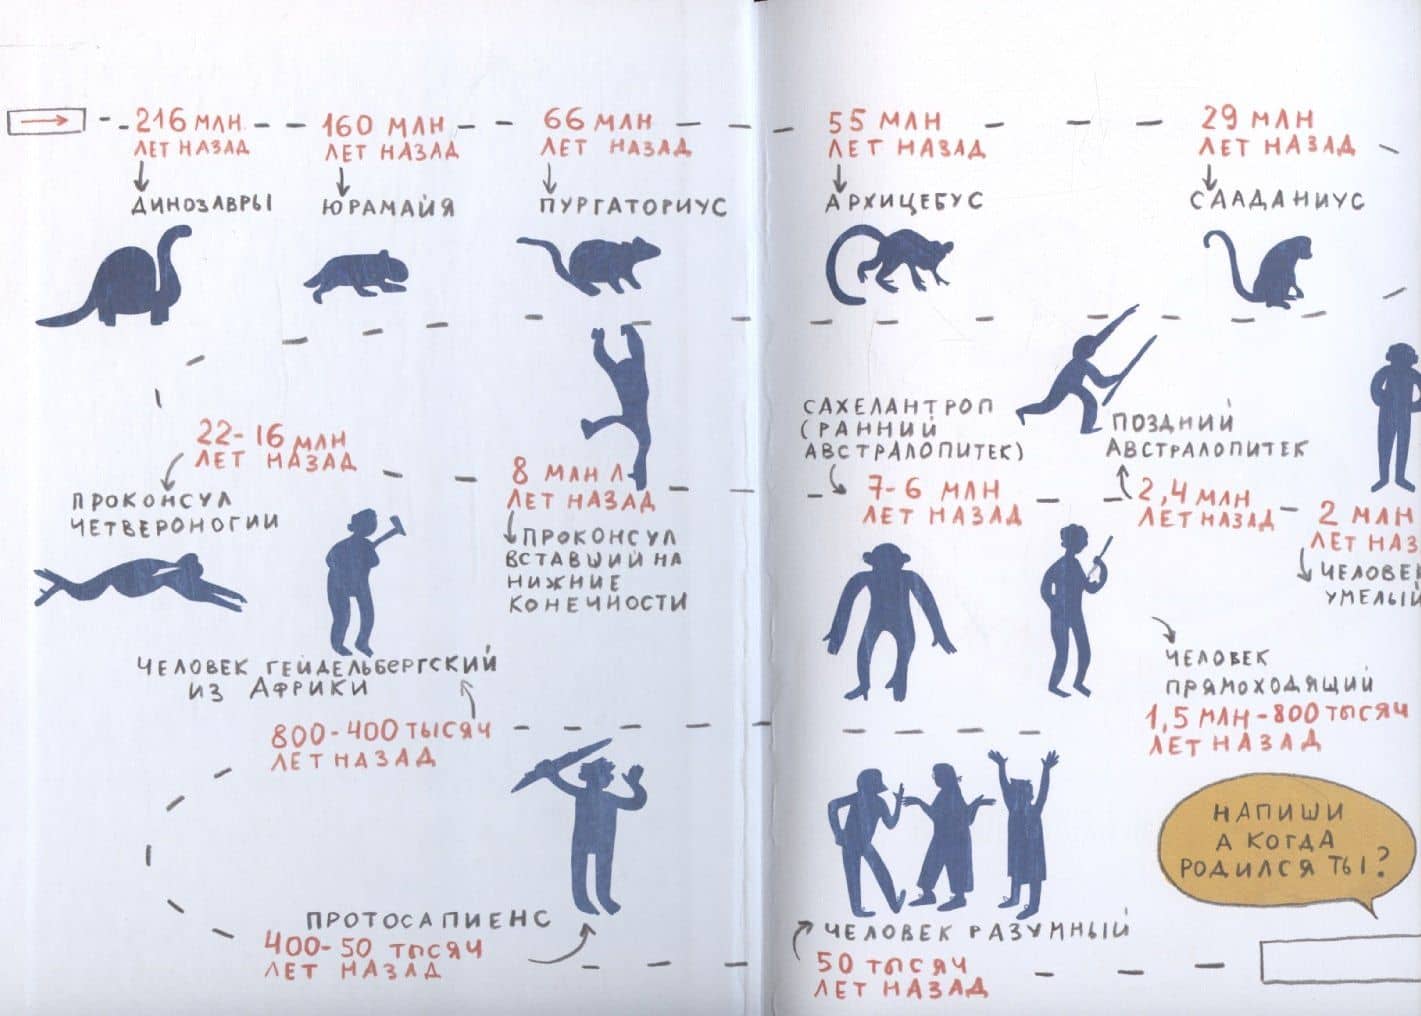 216 МЛН
ЛЕТ НАЗАД
ДИНОЗАВРЫ
160 МЛН
ЛЕТ НАЗАД
ЮРАМАЙЯ
66 МЛН
ЛЕТ НАЗАД
ПУРГАТОРИУС
55 МЛН
ЛЕТ НАЗАД
АРХИЦЕБУС
29 МЛН
ЛЕТ НАЗАД
СААДАНИУС
22-16 МЛН
ЛЕТ НАЗАД
ПРОКОНСУЛ
ЧЕТВЕРОНОГИИ
8 МЛН Л
ЛЕТ НАЗАД
ПРОКОНСУЛ
ВСТАВШИЙ НА
НИЖНИЕ
КОНЕЧНОСТИ
САХЕЛАНТРОП
(РАННИЙ
АВСТРАЛОПИТЕК)
7-6 МЛН
ЛЕТ НАЗАД
ПОЗДНИЙ
АВСТРАЛОПИТЕК
2,4 МЛН
ЛЕТ НАЗАД
2 МЛН
ЛЕТ НАЗ
ЧЕЛОВЕК
УМЕЛЫЙ
ЧЕЛОВЕК
ПРЯМОХОДЯЩИЙ
1,5 МЛН-800 ТЫСЯЧ
ЛЕТ НАЗАД
ЧЕЛОВЕК ГЕЙДЕЛЬБЕРГСКИЙ
ИЗ АФРИКИ
800-400 ТЫСЯЧ
ЛЕТ НАЗАД
ПРОТОСАПИЕНС
400-50 ТЫСЯЧ
ЛЕТ НАЗАД
ЧЕЛОВЕК РАЗУМНЫЙ
50 ТЫСЯЧ
ЛЕТ НАЗАД
НАПИШИ
А КОГДА
РОДИЛСЯ ТЫ?